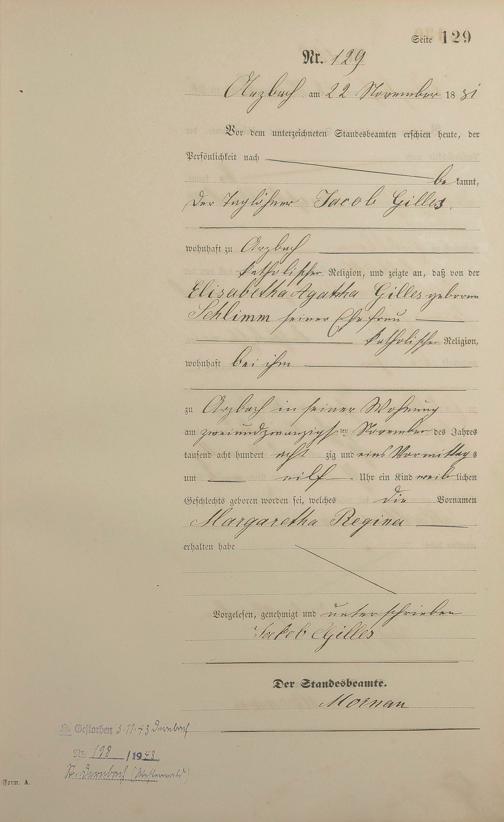 Seite 129
Nr. 129
Arzbach am 22 November 1881
Vor dem unterzeichneten Standesbeamten erschien heute, der
Persönlichkeit nach
bekannt,
der Taglöhner Jacob Gilles
wohnhaft zu Arzbach
katholischer Religion, und zeigte an, daß von der
Elisabetha Agatha Gilles geborene
Schlimm seiner Ehefrau
katholischer Religion,
wohnhaft bei ihm
zu Arzbach in seiner Wohnung
am zweiundzwanzigsten November des Jahres
tausend acht hundert acht zig und eins Vormittags
um eilf Uhr ein Kind weiblichen
Geschlechts geboren worden sei, welches die Vornamen
Margaretha Regina
erhalten habe
Vorgelesen, genehmigt und unterschrieben
Jakob Gilles
Der Standesbeamte.
Mornau
Gestorben 5.11.43 Dernbach
Nr. 198 / 1943
St. Dernbach (Westerwald)
Form. A.